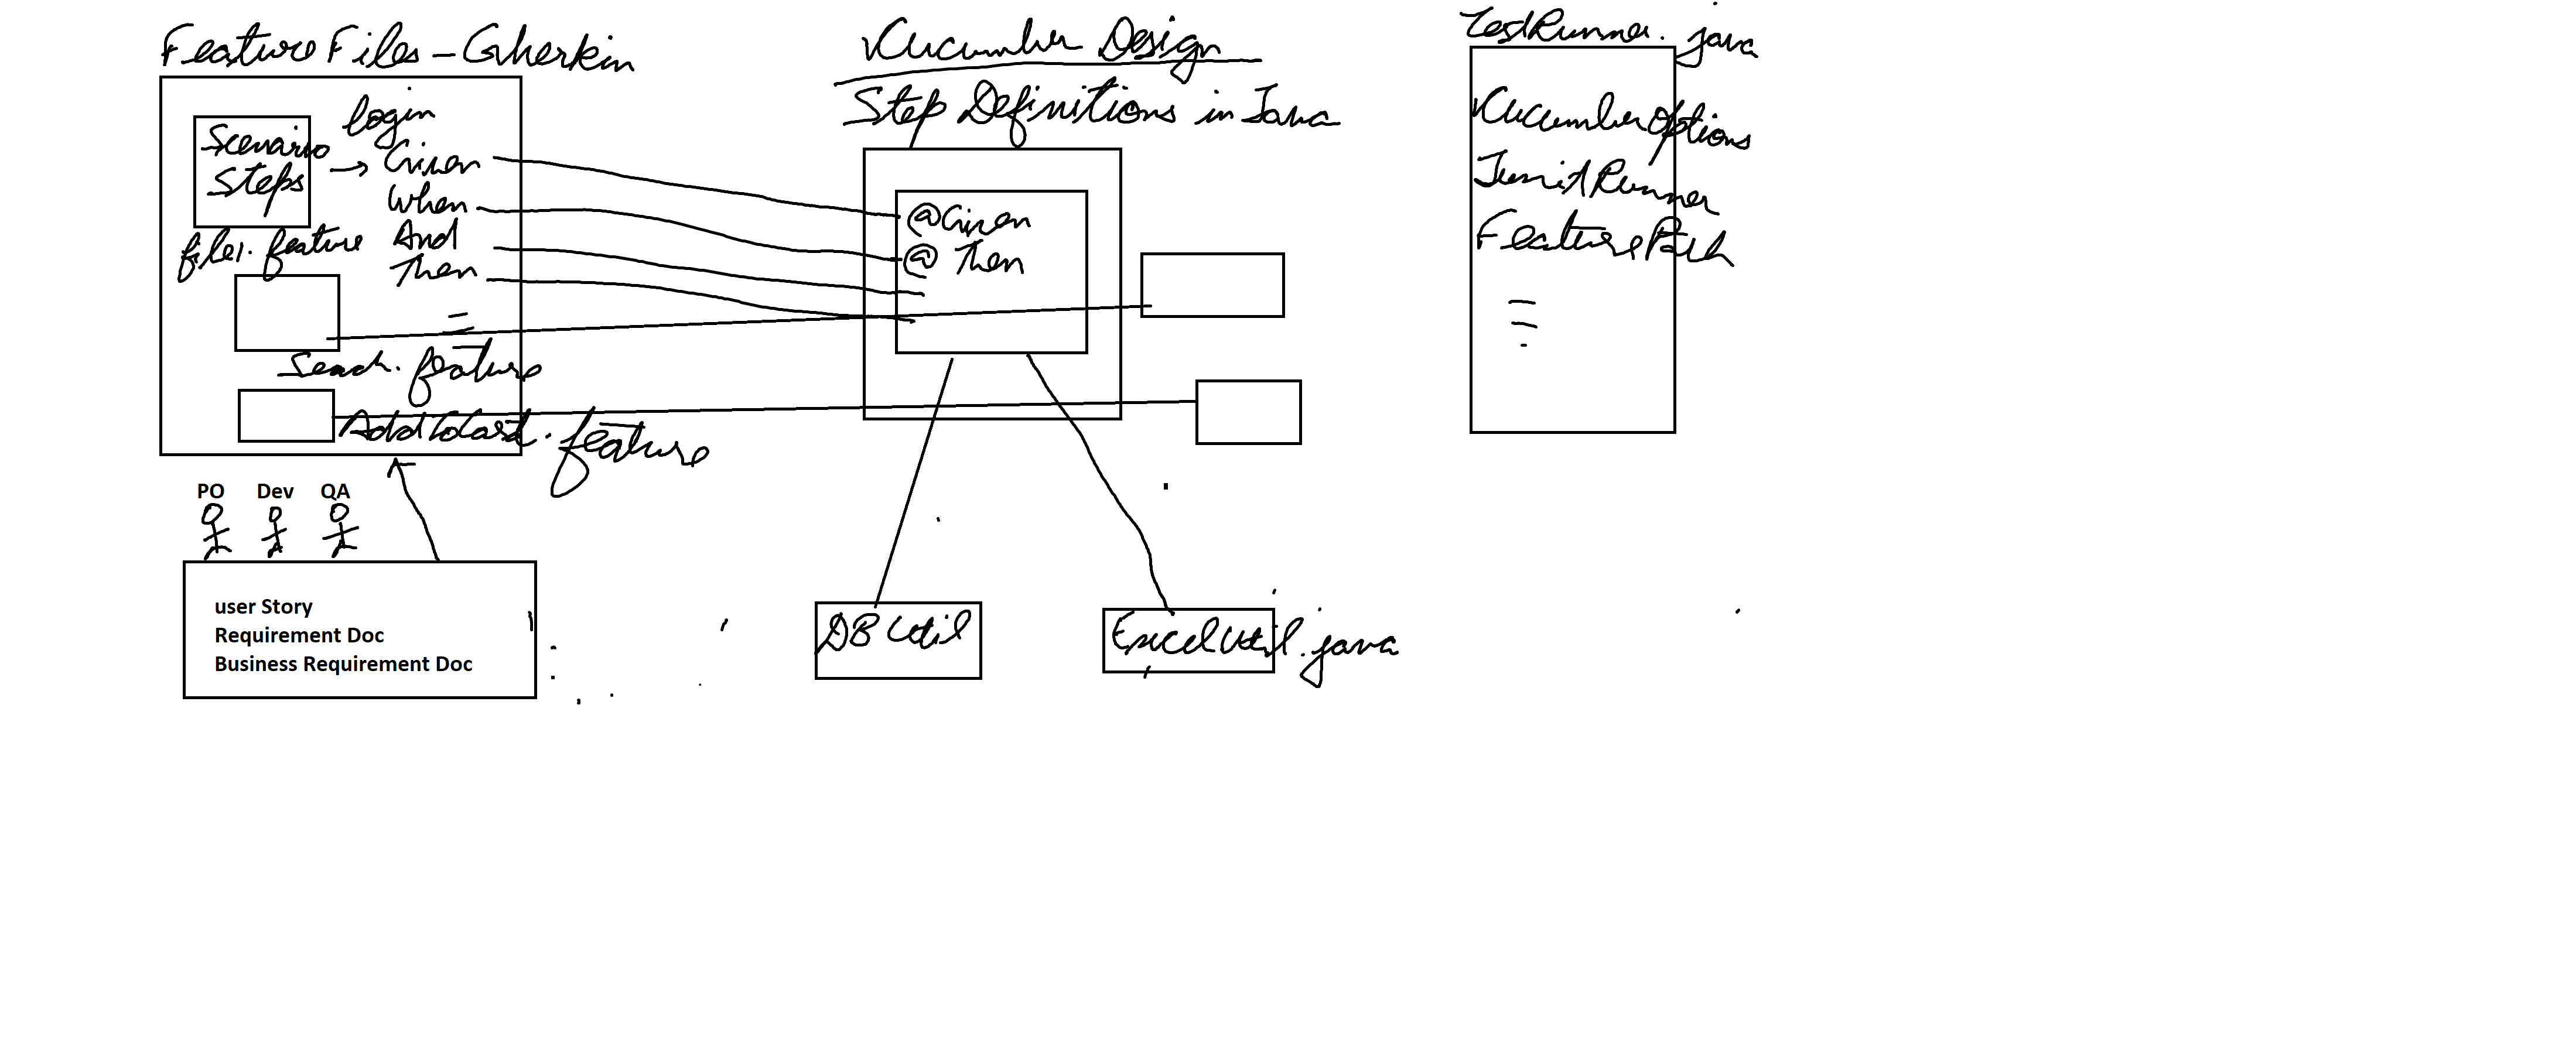 Cucumber Design
Feature Files - Gherkin
login
Scenario
Steps
Given
When
And
Then
file1.feature
Search.feature
AddtoCart.feature
PO Dev QA
user Story
Requirement Doc
Business Requirement Doc
Step Definitions in Java
@Given
@Then
DB Util
ExcelUtil.java
TestRunner.java
CucumberOptions
JunitRunner
FeaturePath